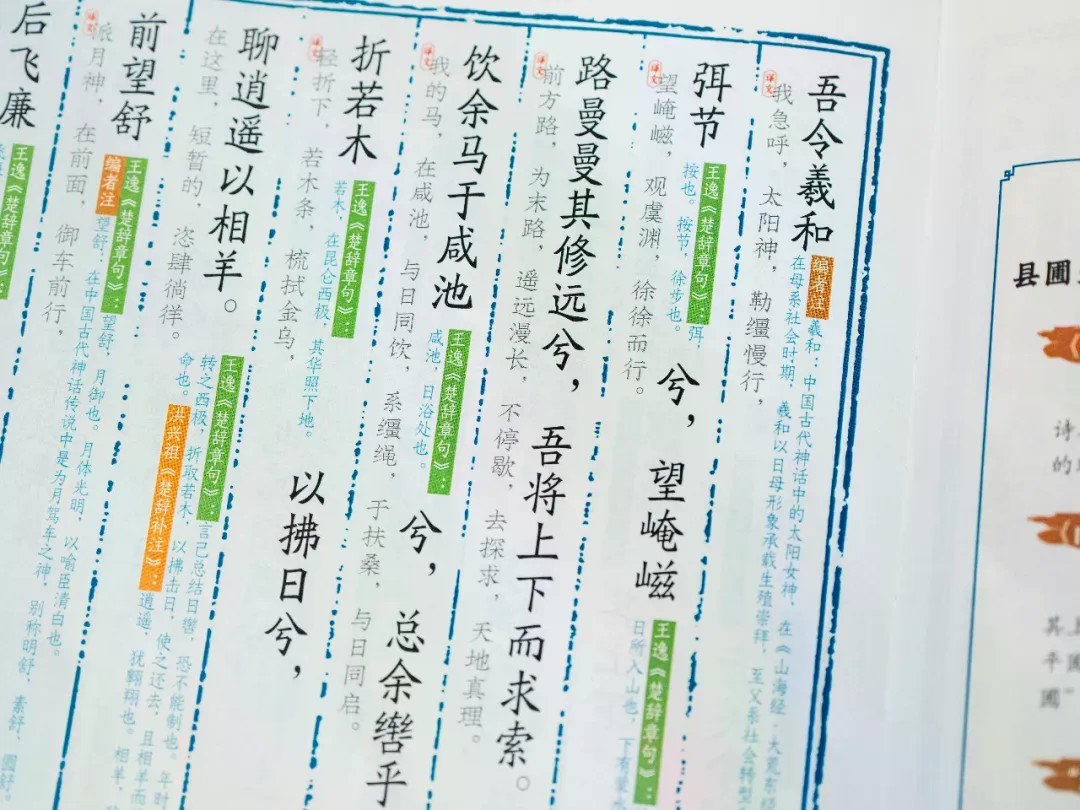 吾令羲和
编者注
羲和：中国古代神话中的太阳女神，在《山海经·大荒东经
在母系社会时期，羲和以日母形象承载生殖崇拜，至父系社会转型
译文
我急呼，太阳神，勒缰慢行，
弭节
王逸《楚辞章句》：
弭，
按也。按节，徐步也。
兮，望崦嵫
王逸《楚辞章句》：
日所入山也，下有蒙水
译文
望崦嵫，观虞渊，徐徐而行。
路曼曼其修远兮，吾将上下而求索。
译文
前方路，为末路，遥远漫长，不停歇，去探求，天地真理。
饮余马于咸池
王逸《楚辞章句》：
咸池，日浴处也。
兮，总余辔乎
译文
我的马，在咸池，与日同饮，系缰绳，于扶桑，与日同启。
折若木
王逸《楚辞章句》：
若木，在昆仑西极，其华照下地。
以拂日兮，
译文
轻折下，若木条，梳拭金乌，
聊逍遥以相羊。
王逸《楚辞章句》：
言己总结日辔，恐不能制也。年时
转之西极，折取若木，以拂击日，使之还去，且相羊而
命也。
洪兴祖《楚辞补注》：
逍遥，犹翱翔也。相羊，
在这里，短暂的，恣肆徜徉。
前望舒
王逸《楚辞章句》：
望舒，月御也。月体光明，以喻臣清白也。
编者注
望舒：在中国古代神话传说中是为月驾车之神，别称明舒、素舒、圆舒。
译文
派月神，在前面，御车前行，
后飞廉
王逸《楚辞章句》：
县圃
诗
的
其上
平圃
圃”